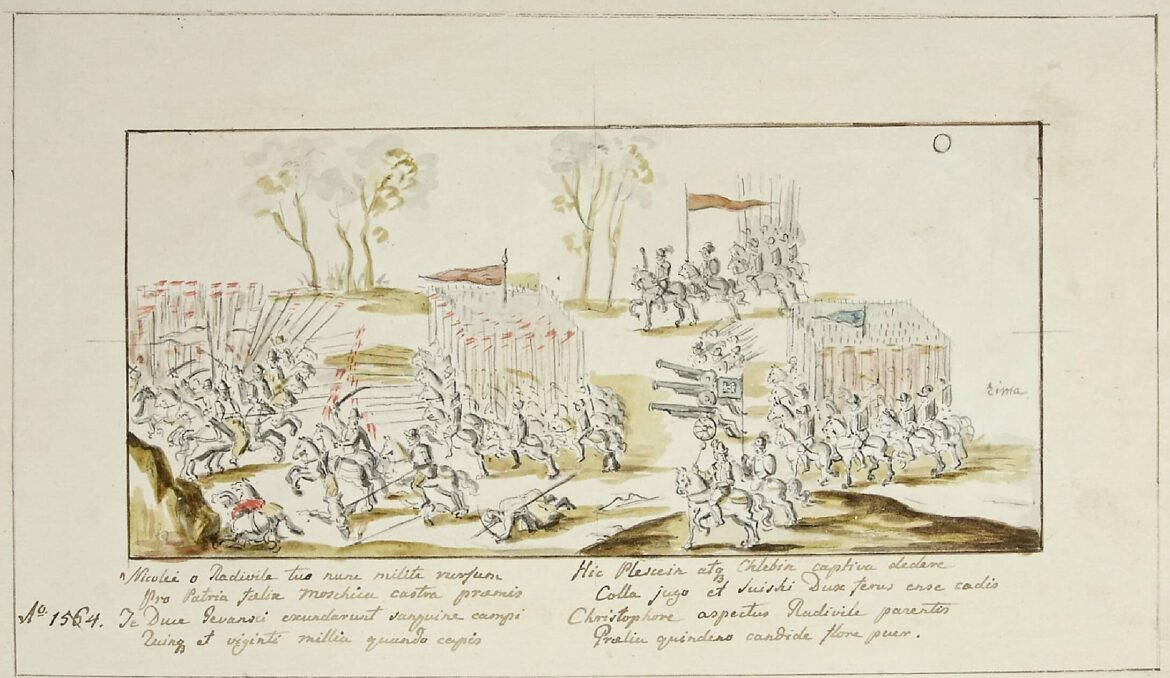 O
zima
Nicoleé o Radivile tuo nunc milite rursum
Pro Patria fælia Moschica castra præmis
Aº. 1564. Te Duce Jevansci exundarunt sanguine campi
Quinqȝ et viginti millia quando capis
Hic Plescein atqȝ Chlebin captiva dedere
Colla jugo et Suiski Dux ferus ense cadis
Christophore aspectus Radivile parentis
Prælia quindeno candide flore puer.